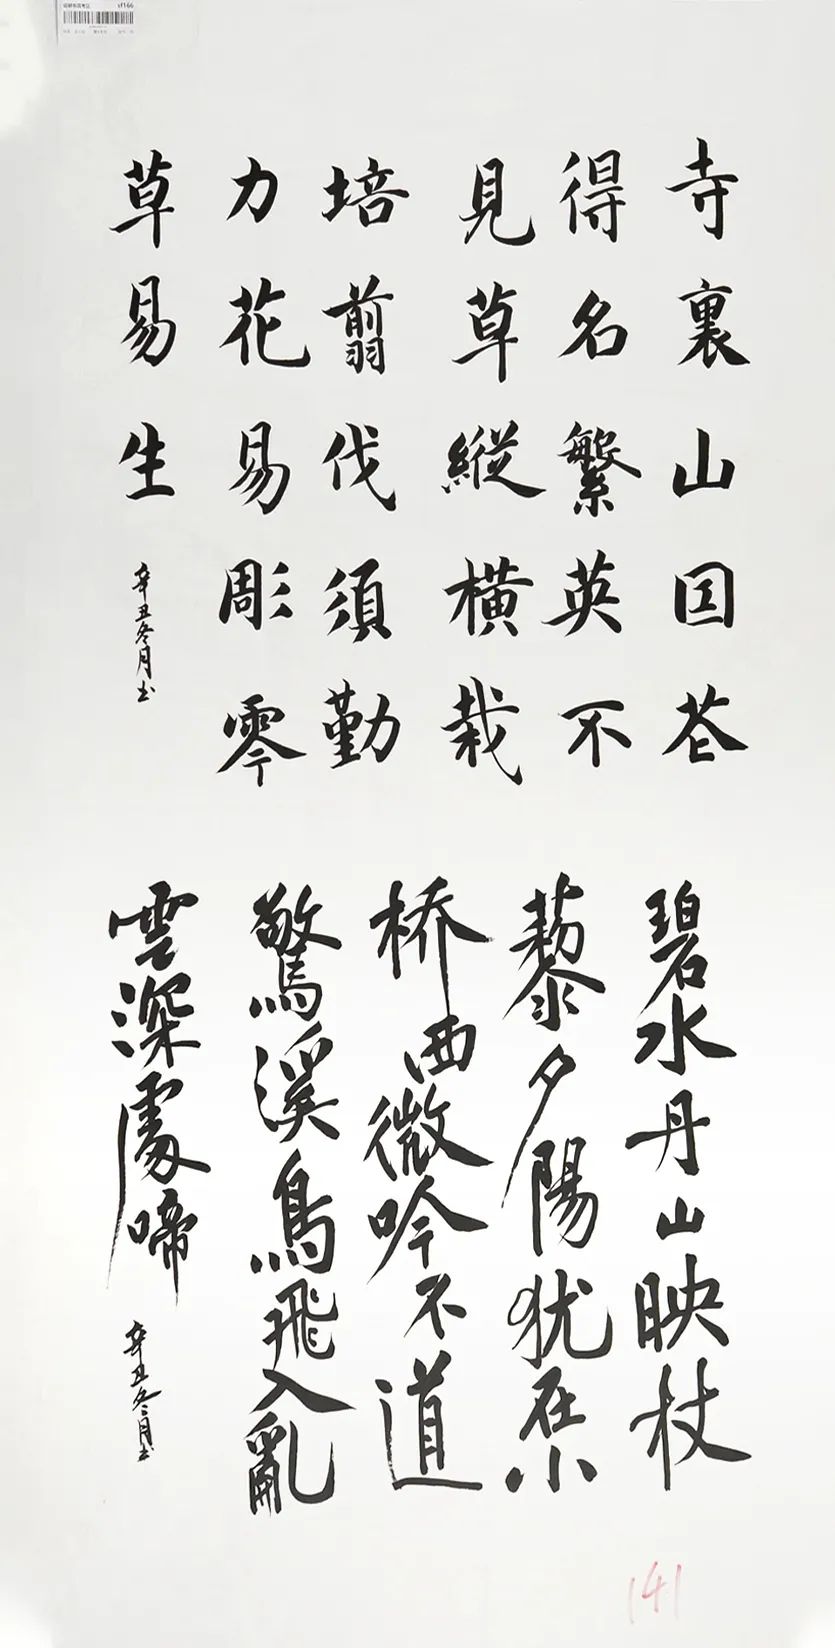 sf166
寺裏山因花
得名繁英不
見草縱橫栽
培翦伐須勤
力花易彫零
草易生
辛丑冬月书
碧水丹山映杖
藜夕陽犹在小
桥西微吟不道
驚溪鳥飛入亂
雲深處啼
辛丑冬月书
141